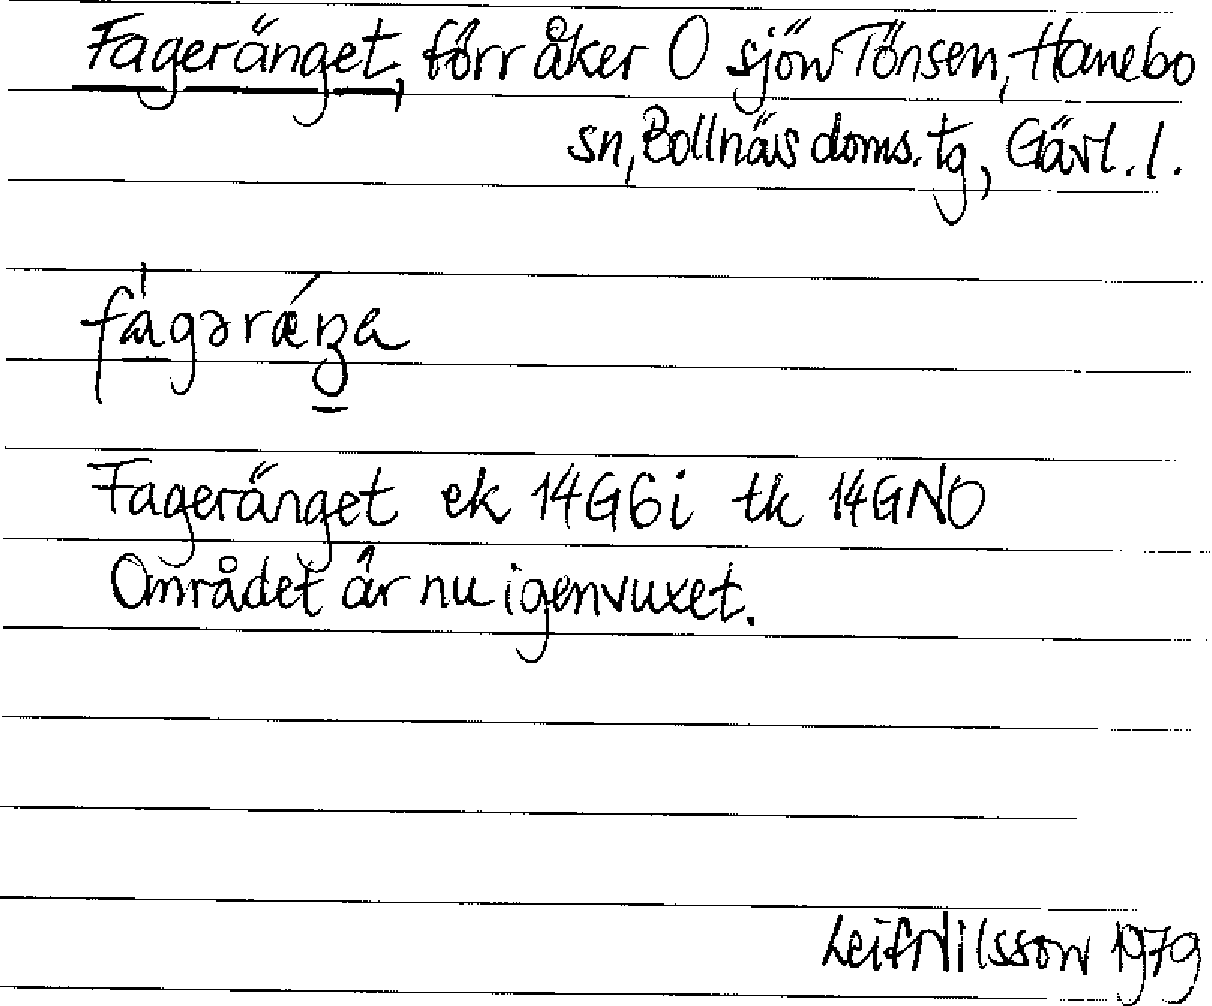 Fageränget, förr åker O sjön Tönsen, Hanebo
sn, Bollnäs doms. tg, Gävl. l.
fágəráŋa
Fageränget ek 14G6i tk 14GNO
Området är nu igenvuxet.
Leif Nilsson 1979